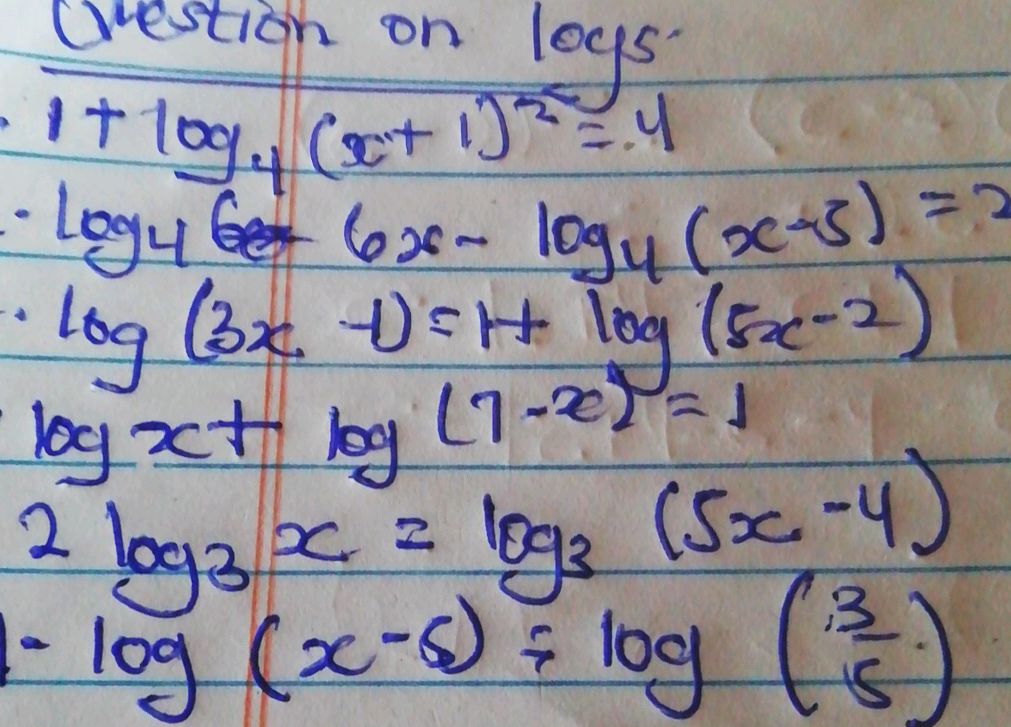 Question on logs.
. 1 + log₄ (x + 1)² = 4
. log₄ 6x - log₄ (x-5) = 2
. log (3x - 1) = 1 + log (5x - 2)
log x + log (7 - x) = 1
2 log₃ x = log₃ (5x - 4)
1 - log (x - 5) = log (3/5)